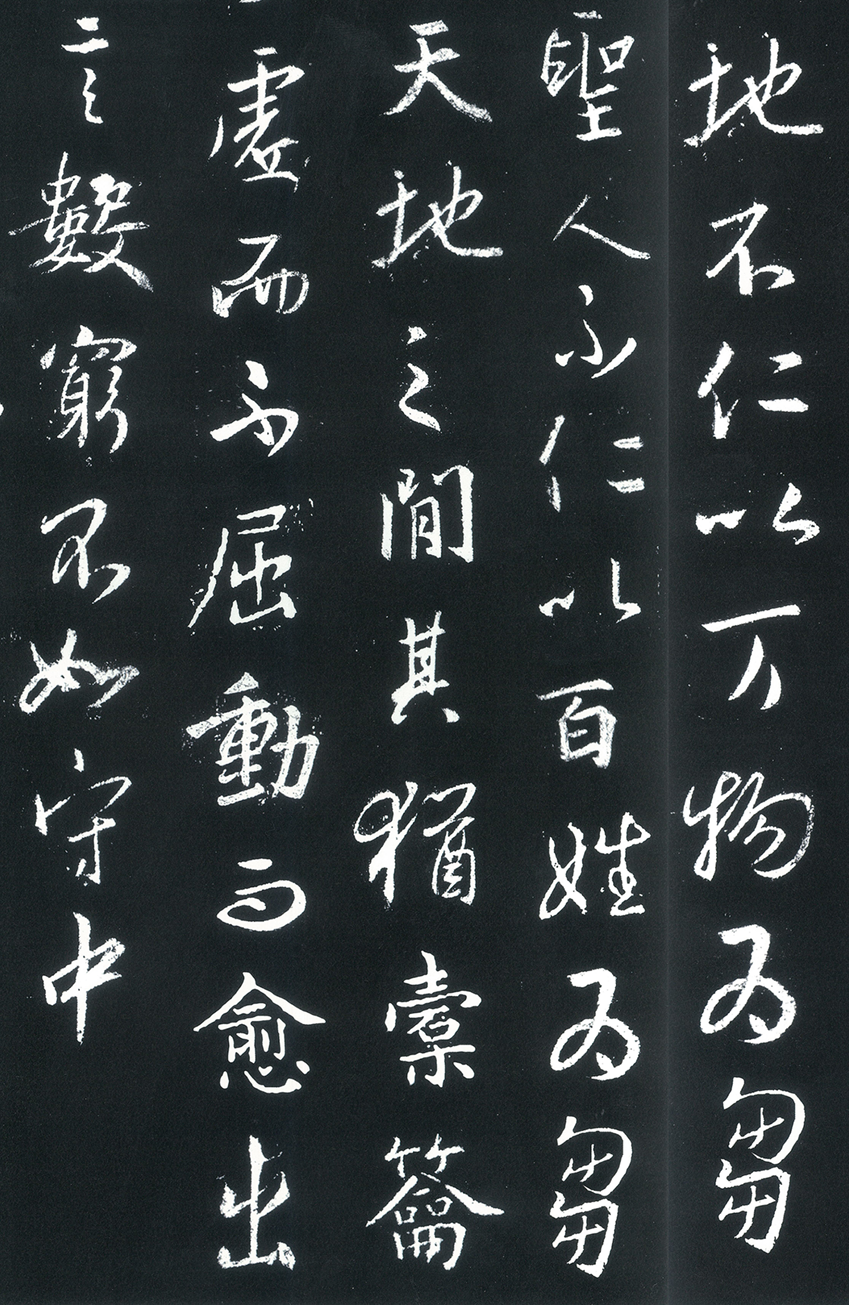 地不仁以万物為芻
聖人不仁以百姓為芻
天地之間其猶橐籥
虛而不屈動而愈出
言數窮不如守中